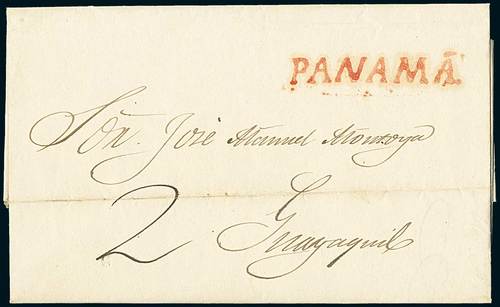 PANAMÁ
Sõn. José Manuel Montoya
2 Guayaquil